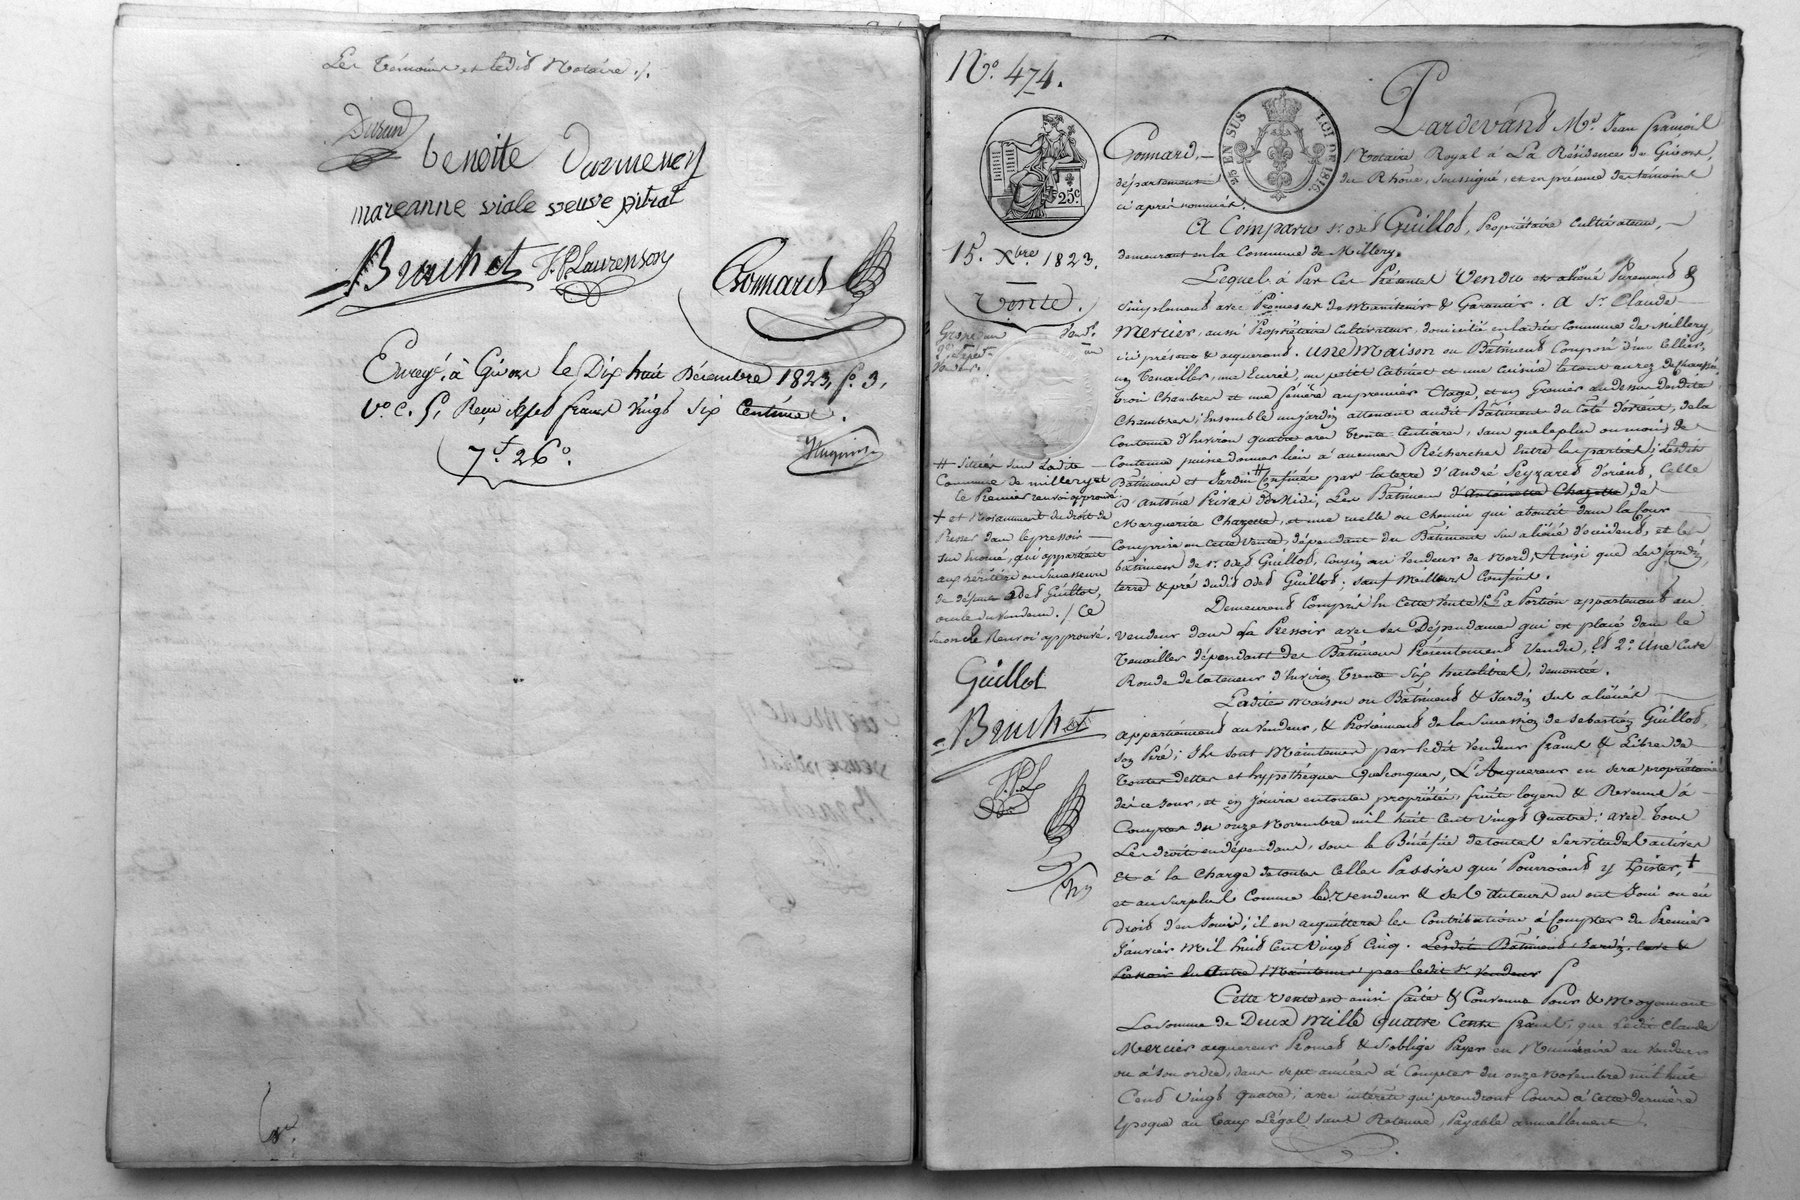 Les témoins et ledit Notaire ./.
Durand
benoite Darmeney
mareanne viale veuve pitrat
Bruchet J. P. Laurenson
Connard
Enregé. à Givors le Dix huit Décembre 1823, fo. 3,
Vo. C. 5, Reçu sept francs vingt six Centimes.
7f. 26c.
No. 474.
25c.
15. Xbre. 1823.
Vente.
25 EN SUS LOI DE 1816
Pardevant Me. Jean françois
Connard, Notaire Royal à La Résidence de Givors,
département du Rhône, soussigné, et en présence des témoins
ci après nommés.
A Comparu sr. Oded Guillot, Propriétaire Cultivateur,
demeurant en la Commune de Millery.
Lequel à Par Ces Présentes Vendu et aliéné Purement &
simplement avec Promesses de Maintenir & Garantir. A Sr. Claude
Mercier, aussi Propriétaire Cultivateur, domicilié en ladite Commune de Millery,
ici présent & acquerant. Une Maison ou Bâtiment Composé d'un Cellier,
un Tenailler, une Ecurie, un petit Cabinet et une Cuisine le tout au rez de chaussée,
trois Chambres et une fénére au premier Etage, et un Grenier au dessus desdites
Chambres; Ensemble un jardin attenant audit Bâtiment du Côté d'orient, de la
Contenue d'Environ quatre ares trente Centiares, sans que le plus ou moins de
Contenue puisse donner lieu à aucunes Recherches Entre les parties; Lesdits
Bâtiment et Jardin # Confinés par la terre d'André Seyzared d'orient, Celle
d'Antoine Peiras de Midi, Les Bâtimens d'Antoinette Chazette de
Marguerite Chazette, et une ruelle ou chemin qui aboutit dans la Cour
Comprise en Cette Vente, dépendant du Bâtiment sus aliéné d'occident, et les
bâtimens de sr. Oded Guillot, Cousin au Vendeur de Nord, Ainsi que Les jardin,
terre & pré dudit Oded Guillot, sauf Meilleurs Confins.
Demeurent Compris En Cette Vente 1o. La Portion appartenant au
vendeur dans La Pressoir avec ses Dépendances qui est placé dans le
Tenailler dépendant des Bâtimens Présentement Vendus, Et 2o. Une Cuve
Ronde de la teneur d'Environ Trente Six hectolitres, démontée.
Ladite Maison ou Bâtiment & Jardin sus aliénés
appartiennent au Vendeur, & Proviennent de la Succession de Sebastien Guillot,
son Père; Ils sont Maintenus par ledit Vendeur francs & Libres de
Toutes dettes et hypothèques Quelconques, L'Acquereur en sera propriétaire
dès ce Jour, et en Jouira en toutes propriétés, fruits loyers & Revenus à
Compter du onze Novembre mil huit Cent Vingt Quatre; avec Tous
Les droits en dépendans, sous le Bénéfice de toutes Servitudes actives
Et à la Charge de toutes Celles Passives qui Pourroient y Exister, +
et au surplus Comme led. vendeur & ses Auteurs en ont Joui ou eû
droit d'en Jouir; il en acquittera les Contributions à Compter du Premier
Janvier Mil huit Cent Vingt Cinq. Lesdits Bâtiment, Jardin, Cuve &
Pressoir En outre Maintenus par ledit sr. Vendeur
Cette Vente est ainsi faite & Convenue Pour & Moyennant
La somme de Deux Mille Quatre Cents francs, que Ledit Claude
Mercier acquereur Promet & s'oblige Payer en Numéraire au Vendeur
ou à son ordre, dans sept années à Compter du onze Novembre mil huit
Cent Vingt Quatre, avec intérêts qui prendront Cours à Cette dernière
Epoque au Taux Légal sans Retenue, Payable annuellement.
# Situés sur Ladite
Commune de millery et
le Premier renvoi approuvé
+ et Notamment du droit de
Presser dans le pressoir
sus énoncé, qui appartient
aux héritiers ou successeurs
de défunt Oded Guillot,
oncle du Vendeur ./. Ce
second Renvoi approuvé.
Guillot
Bruchet
J. P. L.